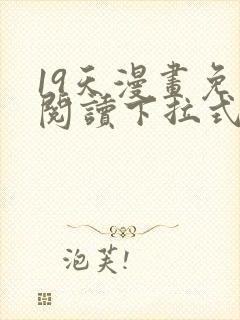 19天漫畫免
閱讀下拉式
泡芙!